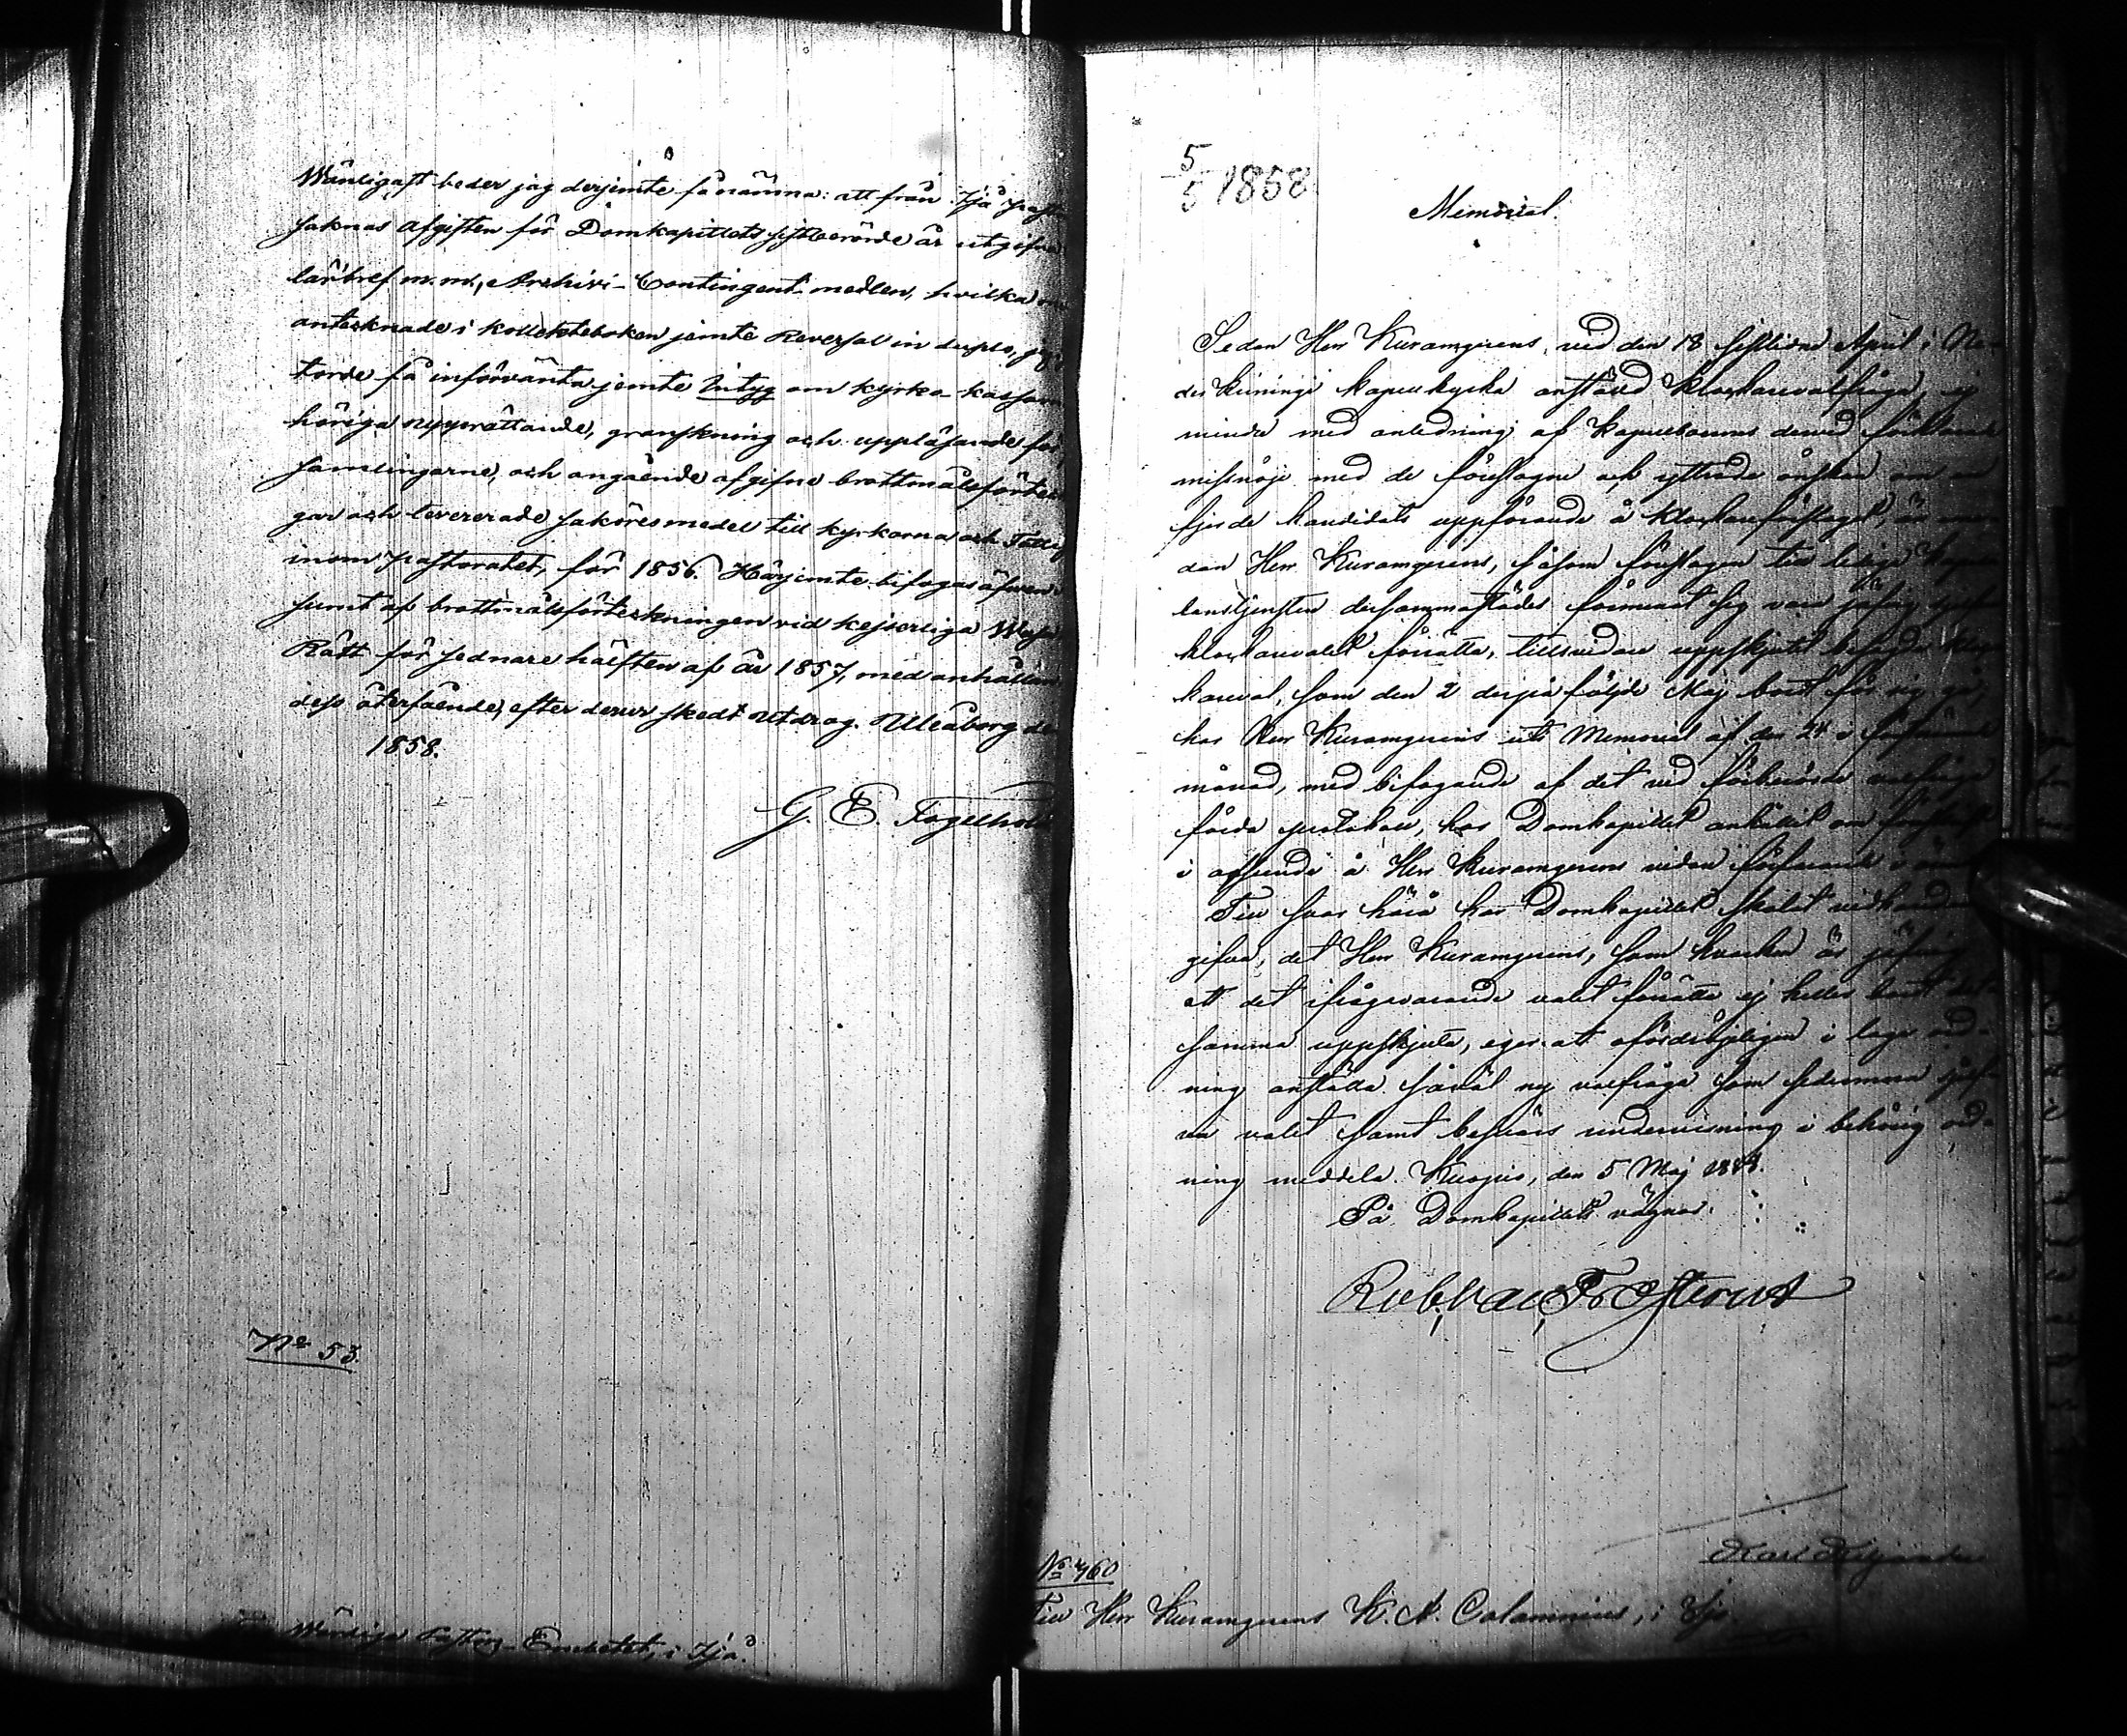 Wänligast beder jag derjemte få nämna: att från Ijå
saknas Afgiften för Domkapitlets sistberörde år utgifne
lärbref m. m., Archivi-Contingent-medlen, hvilka
antecknade i kollekteboken jemte Reversal in duplo,
torde få införvänta jemte Intyg om kyrko-kassorn
höriga upprättande, granskning och uppläsande för
samlingarne, och angående afgifne brottmålsförtec
gar och levererade saköresmedel till kyrkorna och Fattig
inom pastoratet, för 1856. Härjemte bifogas äfven
sumt af brottmålsförteckningen vid Kejserliga Wasa
Rätt för sednare hälften af år 1857, med anhållan
dess återsående, efter derur skedt utdrag. Uleåborg de
1858.
G. E. Fogelhol
No 53.
Wänliga Pastors-Embetet, i Ijå.
5/5 1858
Memorial.
Sedan Herr Kuramgerens, vid den 18 sistlidne April i
derkiimingi kapellkyrka anstäld klockarevalfråga, ej
mindre med anledning af kapelboernes dervid förklarade
missnöje med de föreslagne och yttrade önskan om
fjerde kandidats uppförande å klockareförslaget, än
dan Herr Kuramgerens, såsom föreslagen till lediga
lanstjensten dersammastädes förment sig vara jäfvig
klockarevalet förrätta, tillsvidare uppskjutit besagde
kareval, som den 2 derpå följde Maj bort för sig gå,
har Herr Kuramgerens uti Memorial af den 24 i
månad, med bifogande af det vid förberörde
förda protokoll, hos Domkapitlet anhållit om
i afseende å Herr Kuramgerens vidare förfarande
Till svar härå har Domkapitlet skolat vid hand
gifva, det Herr Kuramgerens, som hvarken är jäfvig
att det ifrågavarande valet förrätta ej heller bort det
samma uppskjuta, eger att ofördröjeligen i laga ord-
ning anställa såväl ny valfråga som sedermera sjelf
va valet samt besvärs undervisning i behörig ord-
ning meddela. Kuopio, den 5 Maj 1858.
På Domkapitlets vägnar.
Rob. Val. Frosterus
No 460
Till Herr Kuramgerens K. A. Calamnius, i Ijo